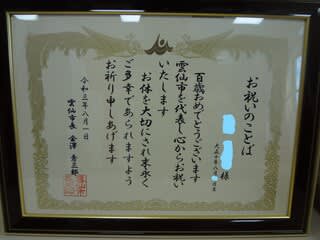 お祝いのことば
様
百歳おめでとうございます
雲仙市を代表し心からお祝い
いたします
お体を大切にされ末永く
ご多幸でありますよう
お祈り申しあげます
令和三年八月一日
雲仙市長 金澤秀三郎